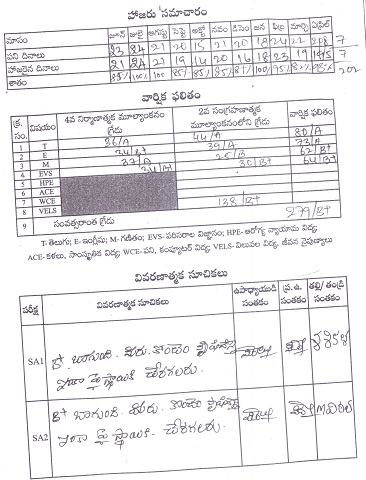 హాజరు సమాచారం
మాసం జూన్ జులై ఆగస్టు సెప్టె అక్టో నవం డిసెం జన ఫిబ్ర మార్చి ఏప్రిల్
పని దినాలు 23 24 21 20 15 21 20 18 24 22
హాజరైన దినాలు 21 24 21 19 14 20 16 18 23 19
శాతం 100% 100
202
వార్షిక ఫలితం
క్ర. సం. విషయం 4వ నిర్మాణాత్మక మూల్యాంకనం గ్రేడు 2వ సంగ్రహణాత్మక మూల్యాంకనంలోని గ్రేడు వార్షిక ఫలితం
1 T 36/A 44/A 80/A
2 E 34/B+ 39/A 73/A
3 M 37/A 25/B 62/B+
4 EVS 34/B+ 30/B+ 64/B+
5 HPE
6 ACE
7 WCE 138/B+
8 VELS 279/B+
9 సంవత్సరాంత గ్రేడు
T- తెలుగు; E- ఇంగ్లీషు; M- గణితం; EVS- పరిసరాల విజ్ఞానం; HPE- ఆరోగ్య వ్యాయామ విద్య;
ACE- కళలు, సాంస్కృతిక విద్య; WCE- పని, కంప్యూటర్ విద్య; VELS- విలువల విద్య, జీవన నైపుణ్యాలు
వివరణాత్మక సూచికలు
పరీక్ష వివరణాత్మక సూచికలు ఉపాధ్యాయుడి సంతకం ప్ర.ఉ. సంతకం తల్లి/ తండ్రి సంతకం
SA1 B+ బాగుంది. మీరు కొంచెం
ఇంకా పై స్థాయికి చేరగలరు.
SA2 B+ బాగుంది. మీరు కొంచెం
ఇంకా పై స్థాయికి చేరగలరు.